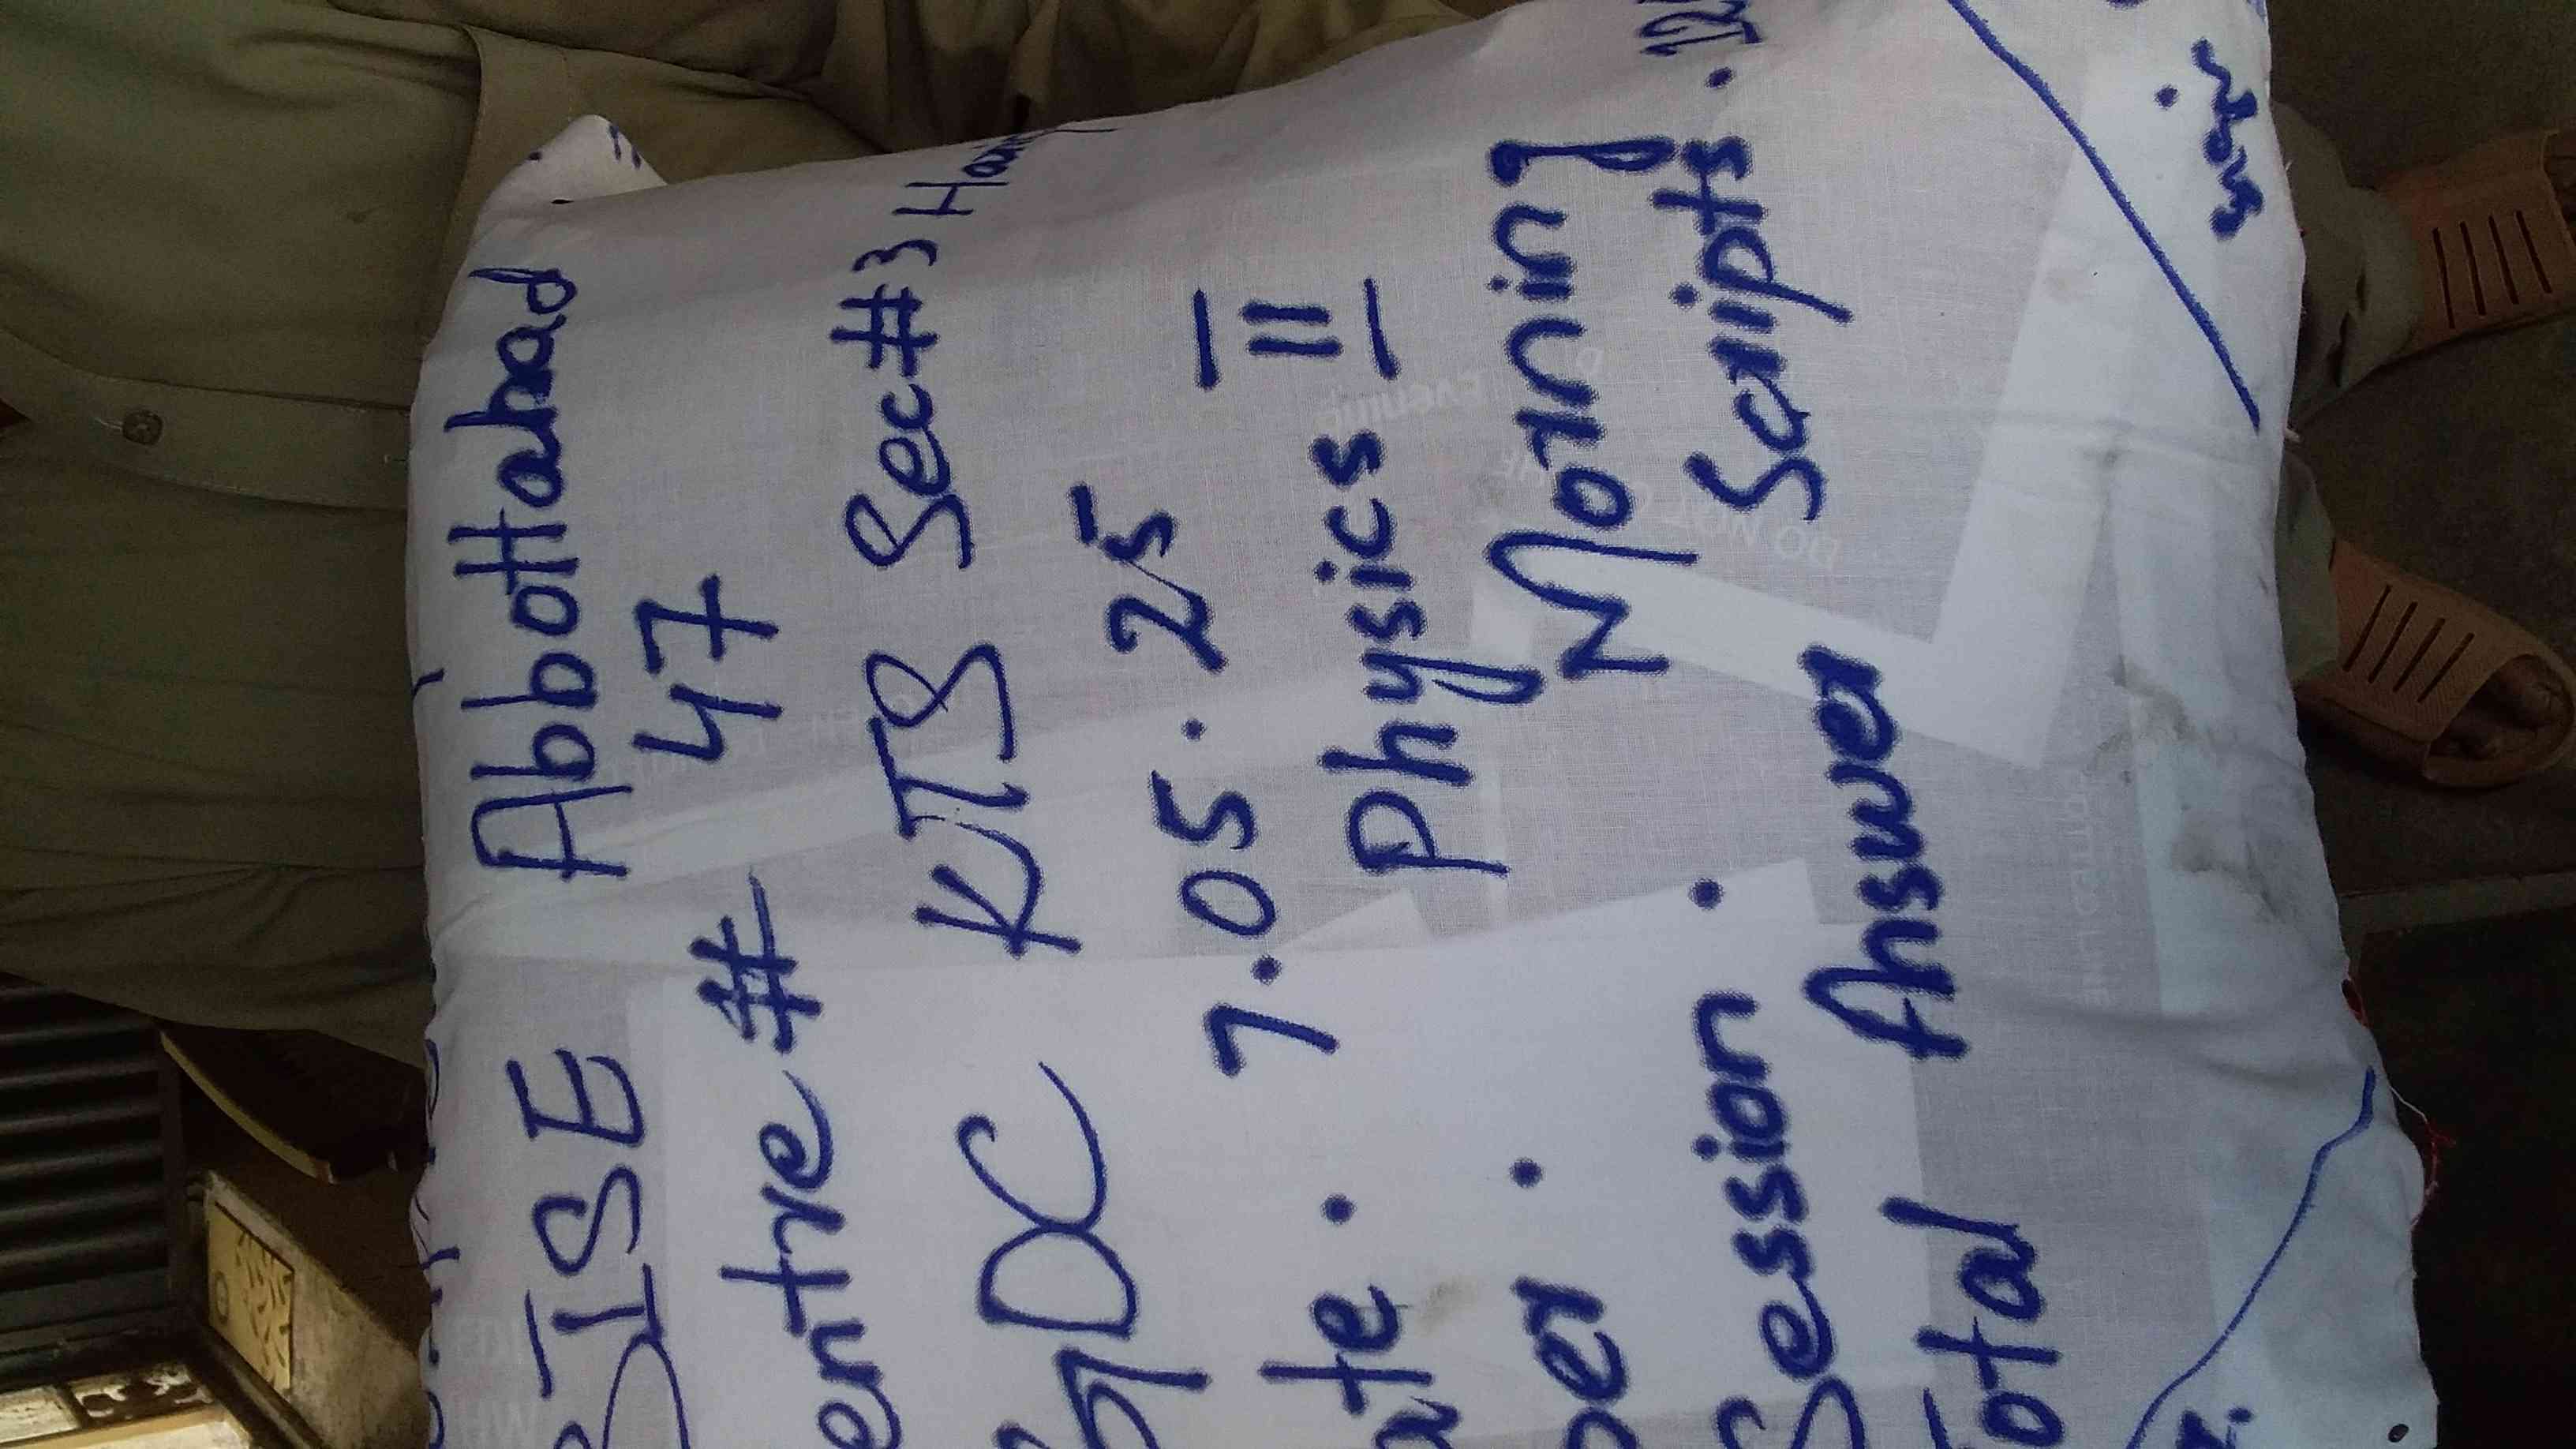 BISE Abbottabad
entre # 47
GDC KTS Sec#3
ate. 7.05.25
per. Physics II
Session. Morning
Total Answer Scripts.